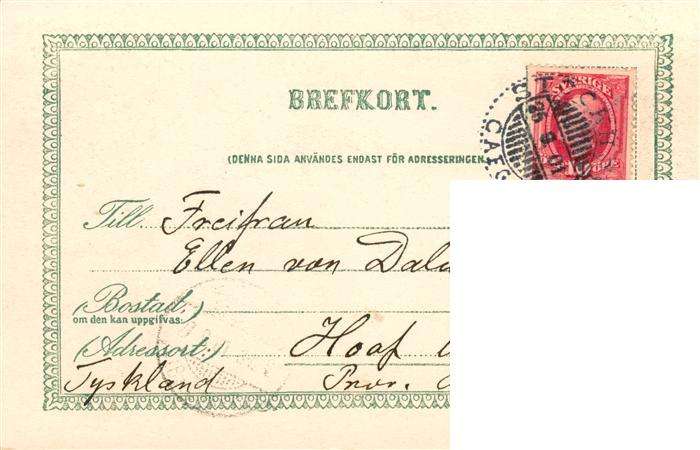 BREFKORT.
SVERIGE
(DENNA SIDA ANVÄNDES ENDAST FÖR ADRESSERINGEN
Till Freifrau
Ellen von
(Bostad,
om den kan uppgifvas:)
(Adressort:) Hoof
Tyskland Prov.